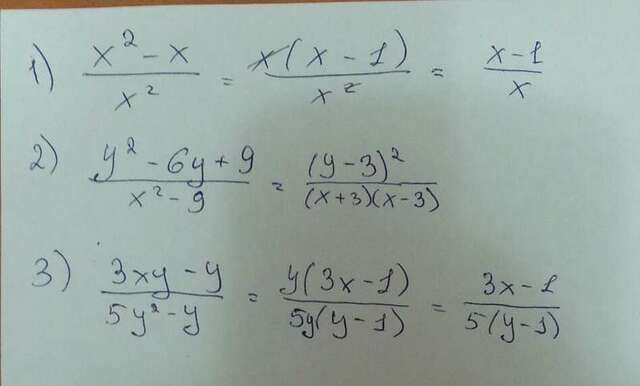 1) (x² - x)/x² = x(x - 1)/x² = (x - 1)/x
2) (y² - 6y + 9)/(x² - 9) = (y - 3)²/((x + 3)(x - 3))
3) (3xy - y)/(5y² - y) = y(3x - 1)/(5y(y - 1)) = (3x - 1)/(5(y - 1))